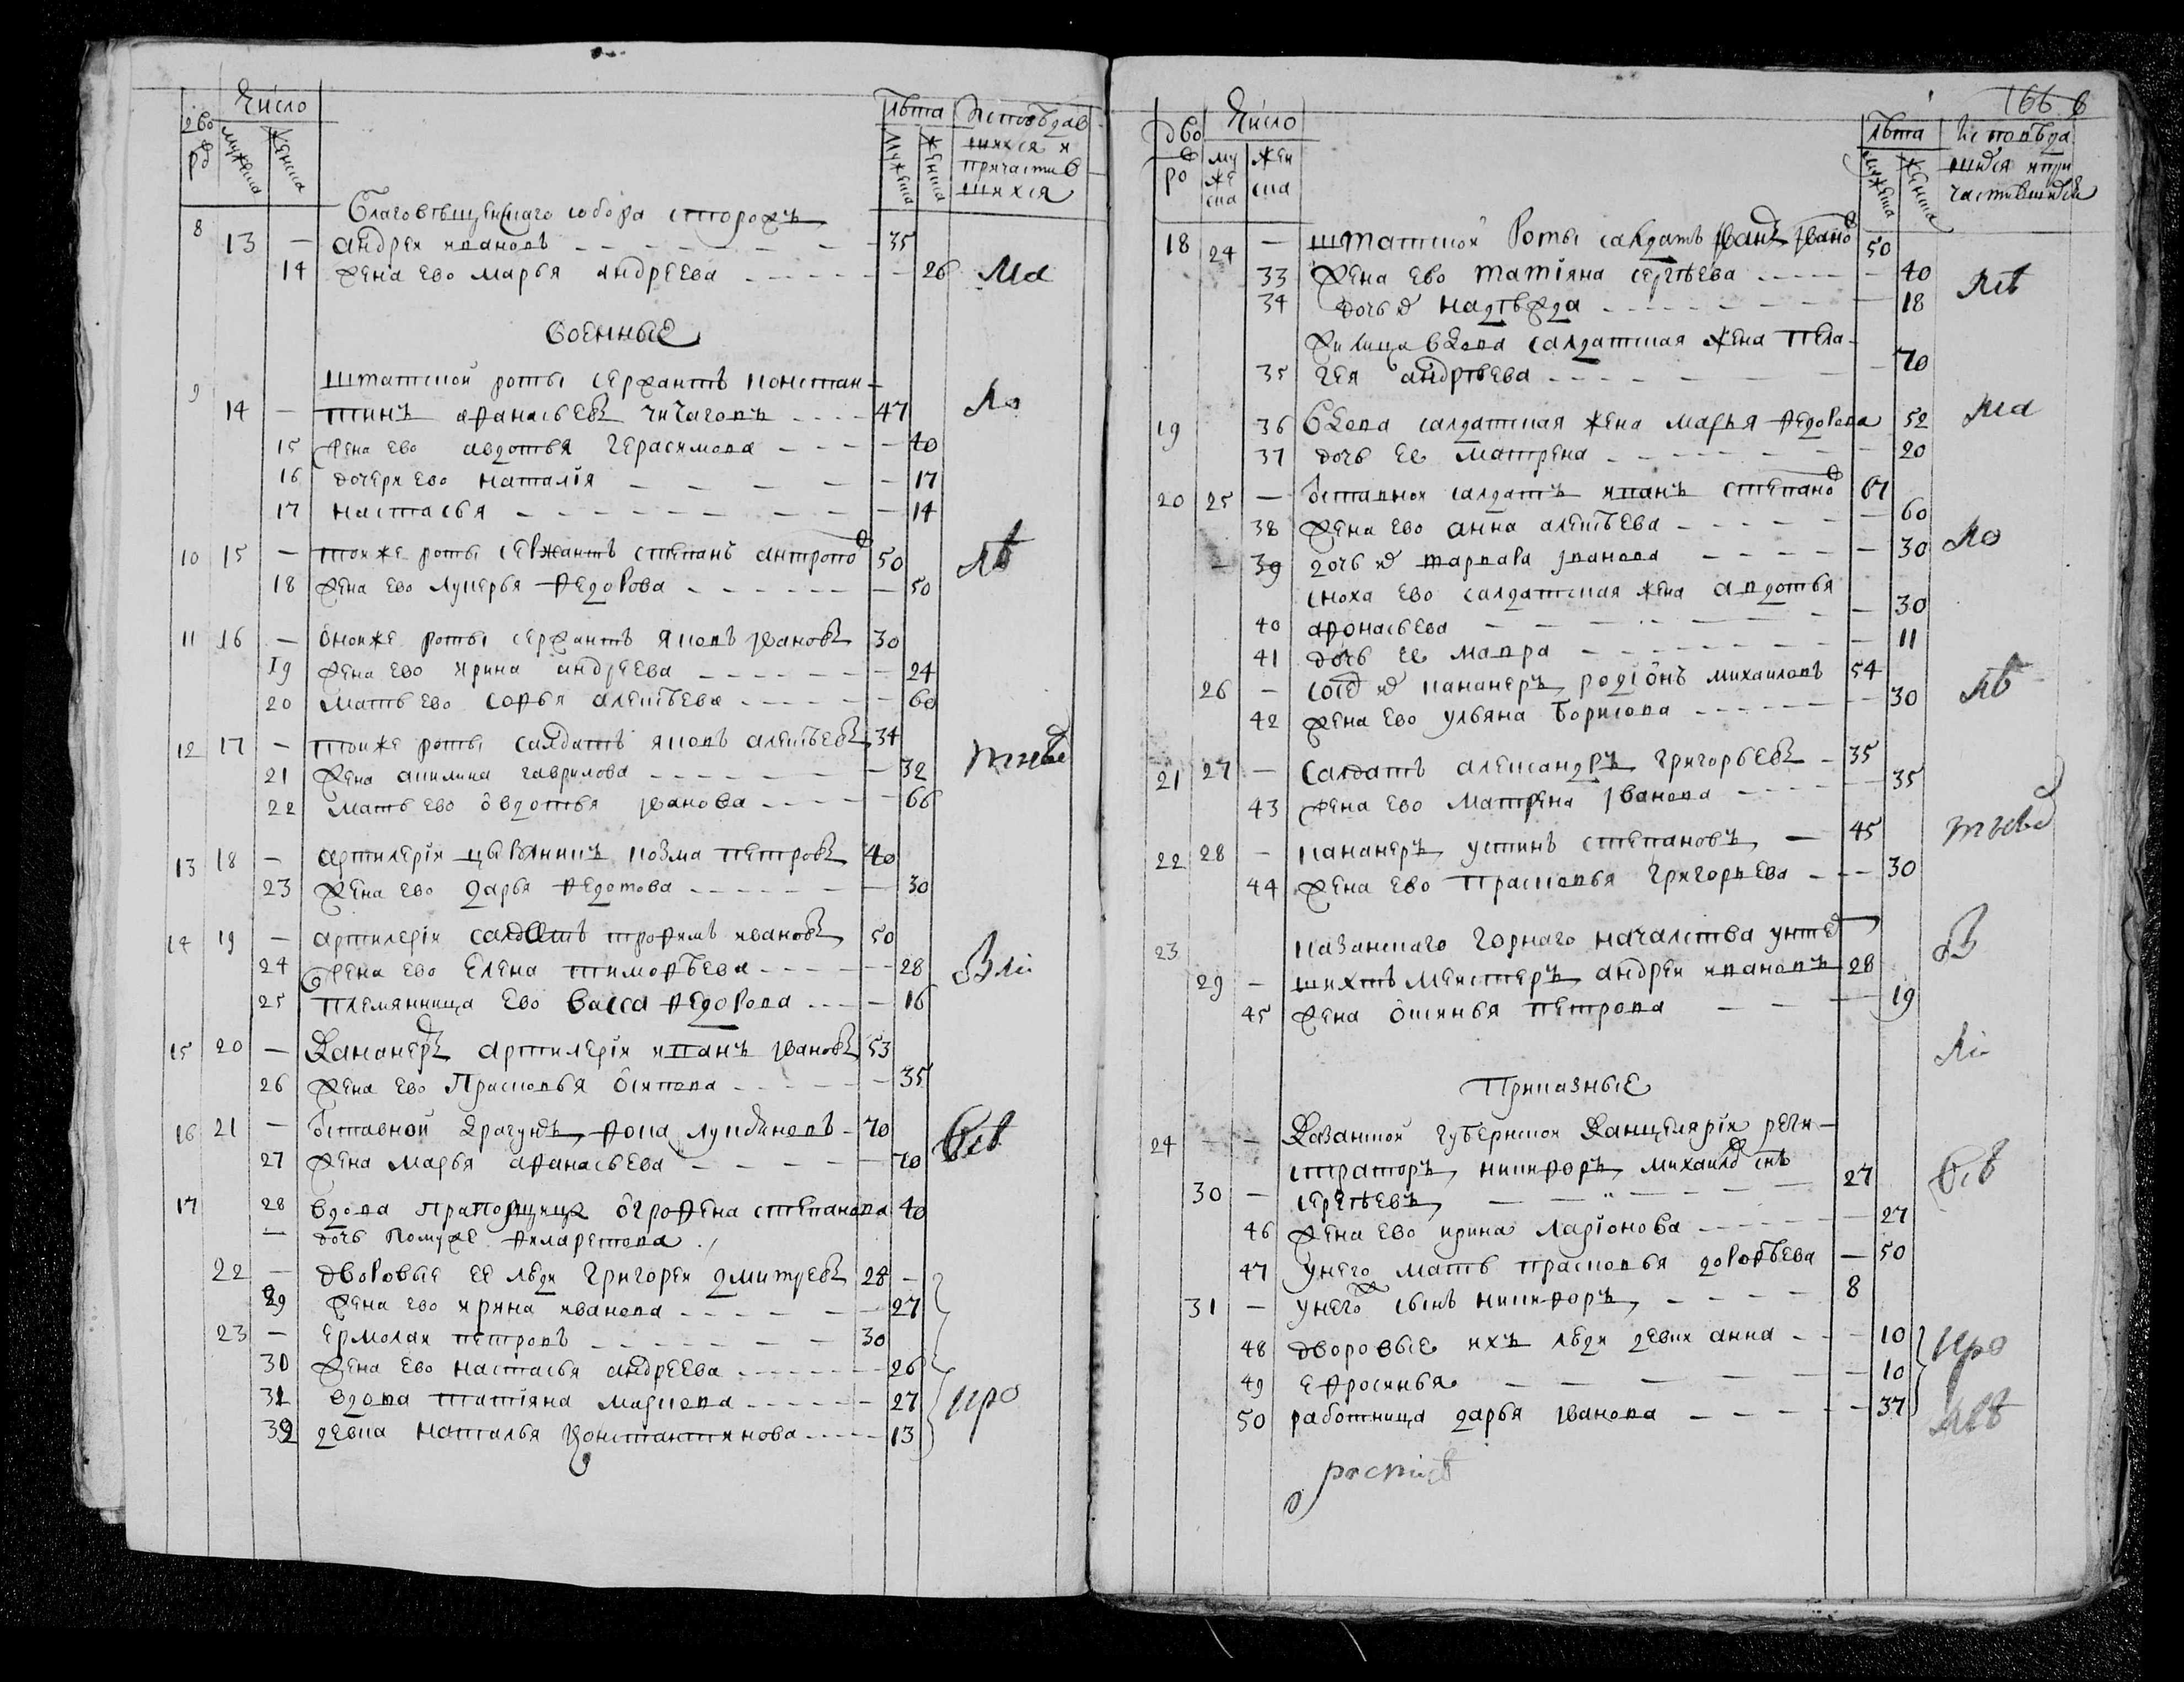 Число
дворо
мужеска
женска
лѣта
мужеска
женска
исповѣдав
шихся и
причастив
шихся
Благовѣщенскаго собора сторожъ
8 13 — андреи ивановъ 35
14 жена ево марья андреева 26
Военные
9 штатской роты сержантъ констан-
14 — тинъ афанасьевъ чичаговъ 47
15 жена ево авдотья герасимова 40
16 дочери ево наталія 17
17 настасья 14
10 15 — тоиже роты сержантъ степанъ антропо 50
18 жена ево лукерья федорова 50
11 16 — оноиже роты сержантъ яковъ івановъ 30
19 жена ево ирина андреева 24
20 мать ево софья алексѣева 60
12 17 — тоиже роты салдатъ яковъ алексѣевъ 34
21 жена акилина гаврилова 32
22 мать ево овдотья іванова 66
13 18 — артилеріи цырюлникъ козма петровъ 40
23 жена ево дарья федотова 30
14 19 — артилеріи салдатъ трофимъ ивановъ 50
24 жена ево Елена тимофѣева 28
25 племянница ево васса федорова 16
15 20 — Кананеръ артилеріи иванъ івановъ 53
26 жена ево Прасковья осипова 35
16 21 — отставной драгунъ фока 70
27 жена марья афанасьева 70
17 28 вдова прапорщица огрофена степанова 40
— дочь помуже филаретова
22 — дворовые ее люди григореи дмитревъ 28
29 жена ево ирина иванова 27
23 — ермолаи петровъ 30
30 жена ево настасья андреева 26
31 вдова татіяна маркова 27
32 девка наталья константинова 13
166
Число
дворо
му
же
ска
жен
ска
лѣта
мужеска
женска
исповѣда
шихся и при
частившихся
18 24 — штатскои роты салдатъ іванъ івано 50
33 жена ево татіяна сергѣева 40
34 дочь надѣжда 18
жилица вдова салдатская жена пела-
35 гея андрѣева 70
19 36 вдова салдатская жена марья федорова 52
37 дочь ее матрена 20
20 25 — отставнои салдатъ иванъ степано 67
38 жена ево анна алексѣева 60
39 дочь варвара іванова 30
сноха ево салдатская жена авдотья
40 афонасьева 30
41 дочь ее мавра 11
26 — кананеръ родіонъ михаиловъ 54
42 жена ево ульяна борисова 30
21 27 — салдатъ александръ григорьевъ 35
43 жена ево матрена іванова 35
22 28 — кананеръ устинъ степановъ 45
44 жена ево прасковья григорьева 30
23 казанскаго горнаго началства унте
29 — шихтъ меистеръ андреи ивановъ 28
45 жена оксинья петрова 19
Приказные
24 — — Казанской губернской канцеляріи реги-
страторъ никифоръ михаило снъ
30 — сергѣевъ 27
46 жена ево ирина ларіонова 27
47 у него мать прасковья дорофѣева 50
31 — у него сынъ никифоръ 8
48 дворовые ихъ люди девки анна 10
49 ефросинья 10
50 работница дарья іванова 37